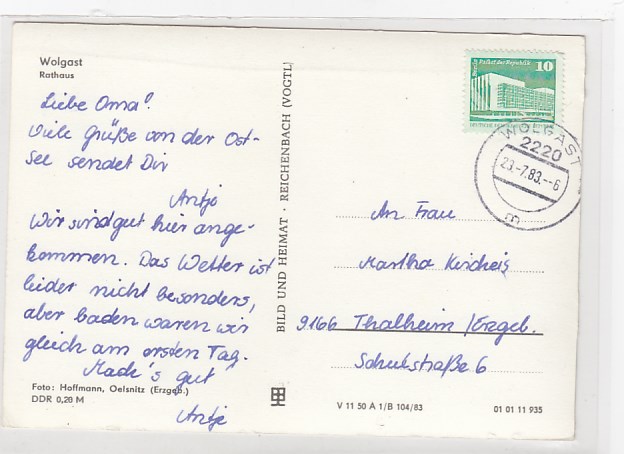 Wolgast
Rathaus
Liebe Oma!
Viele Grüße von der Ost-
see sendet Dir
Antje
Wir sind gut hier ange-
kommen. Das Wetter ist
leider nicht besonders,
aber baden waren wir
gleich am ersten Tag.
Mach's gut
Antje
Foto: Hoffmann, Oelsnitz (Erzgeb.)
DDR 0,20 M
BILD UND HEIMAT · REICHENBACH (VOGTL)
10
Palast der Republik
WOLGAST
2220
23.-7.83.--6
An Frau
Martha Kircheis
9166 Thalheim /Erzgeb.
Schulstraße 6
V 11 50 A 1/B 104/83
01 01 11 935